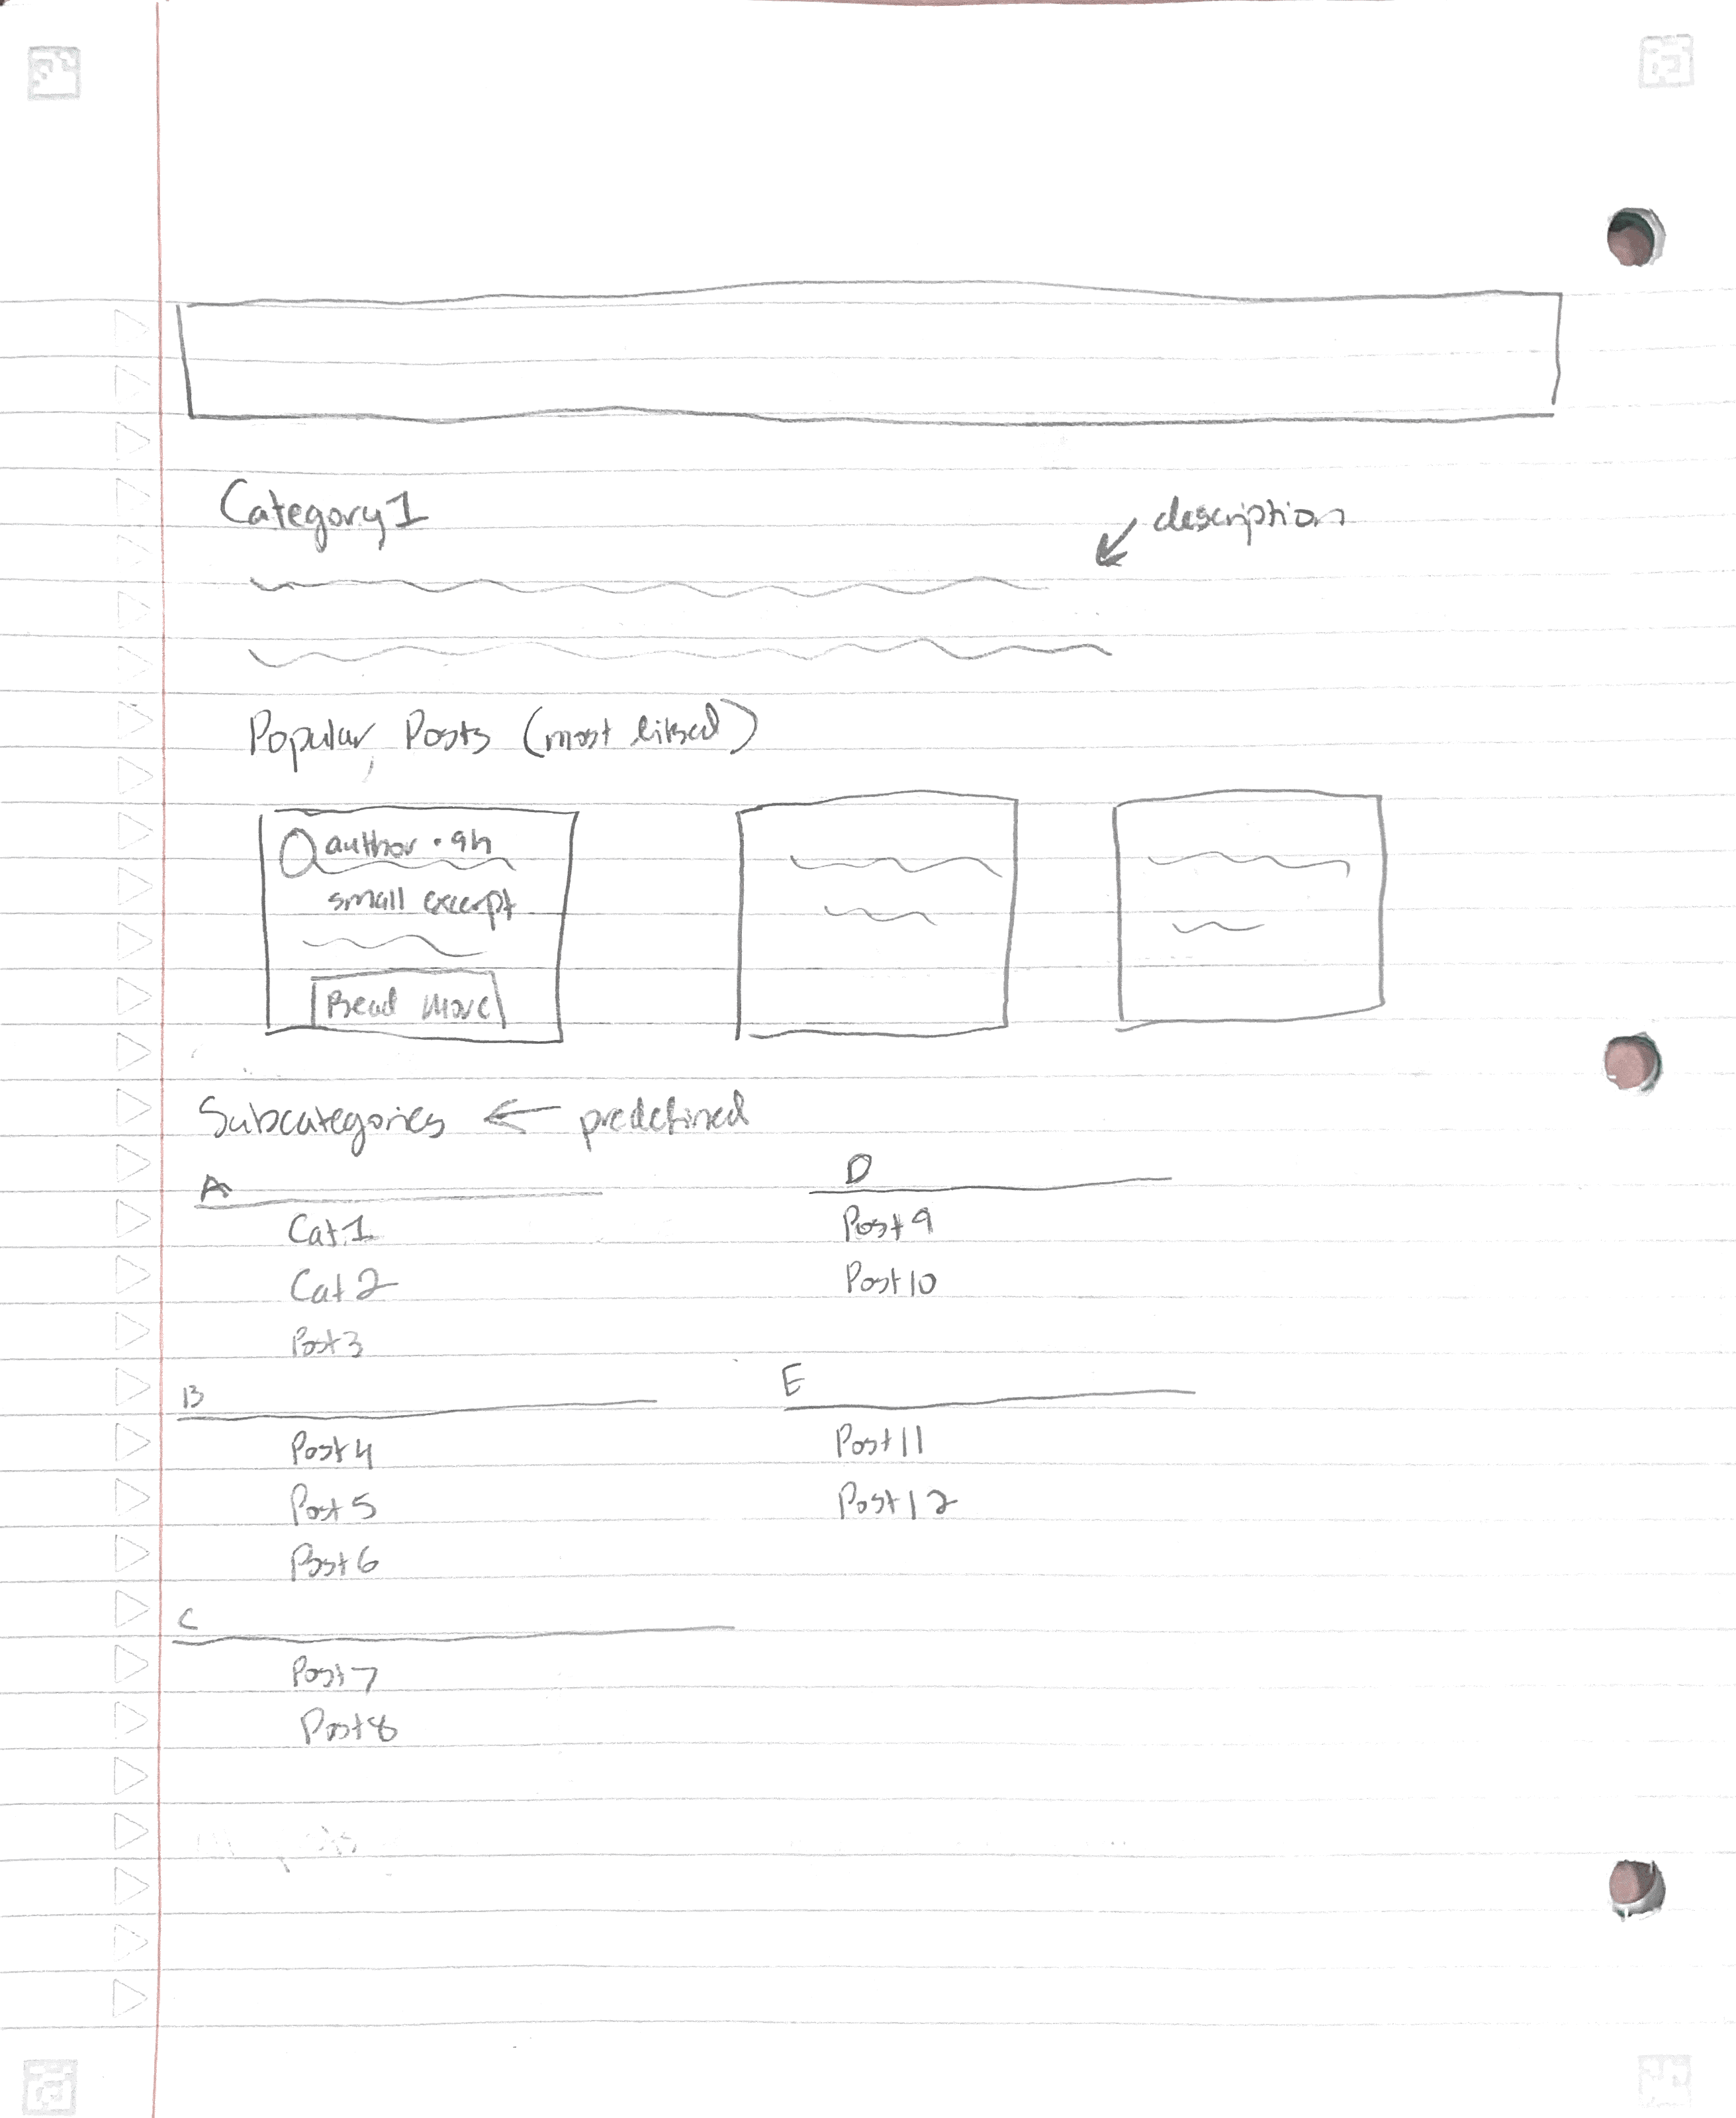 Category 1
description
Popular Posts (most liked)
author • 9h
small excerpt
Read More
Subcategories ← predefined
A
Cat 1
Cat 2
Post 3
B
Post 4
Post 5
Post 6
C
Post 7
Post 8
D
Post 9
Post 10
E
Post 11
Post 12